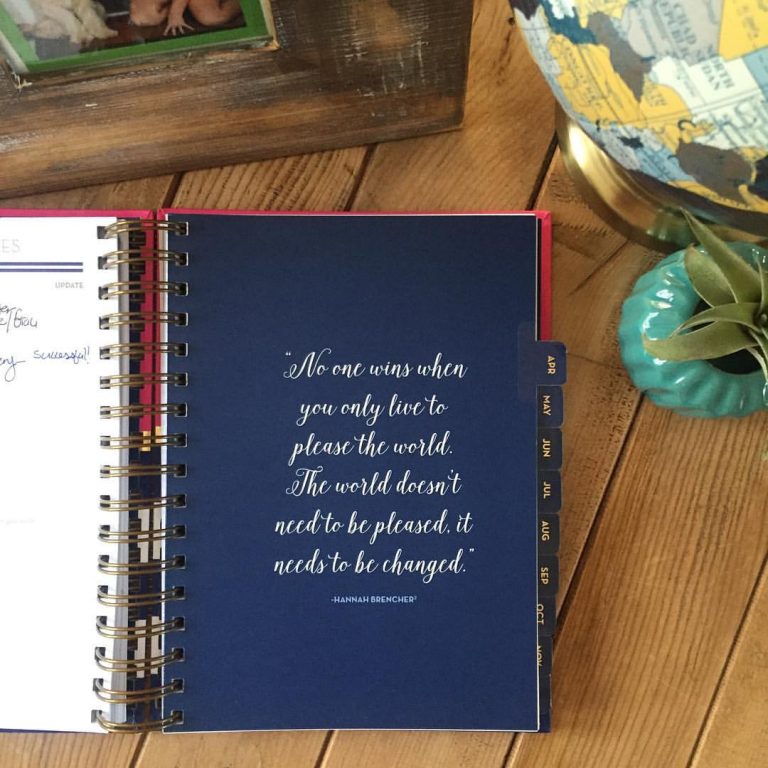 ES
UPDATE
Successful!!
"No one wins when
you only live to
please the world.
The world doesn't
need to be pleased, it
needs to be changed."
-HANNAH BRENCHER²
APR
MAY
JUN
JUL
AUG
SEP
OCT
NOV